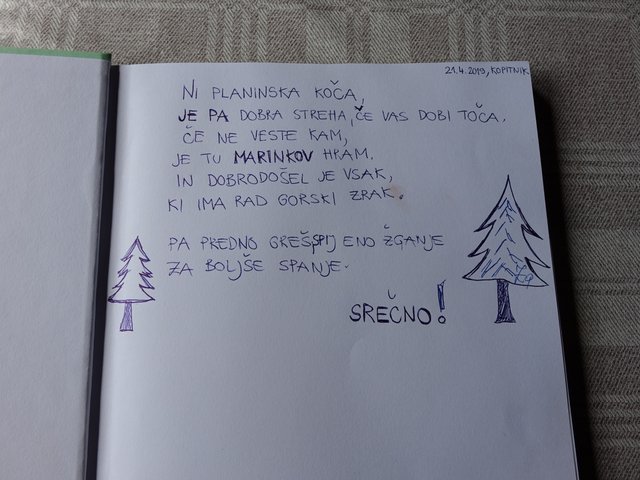 21.4.2019, KOPITNIK
NI PLANINSKA KOČA,
JE PA DOBRA STREHA, ČE VAS DOBI TOČA.
ČE NE VESTE KAM,
JE TU MARINKOV HRAM.
IN DOBRODOŠEL JE VSAK,
KI IMA RAD GORSKI ZRAK.
PA PREDNO GREŠ SPIJ ENO ŽGANJE
ZA BOLJŠE SPANJE.
SREČNO!